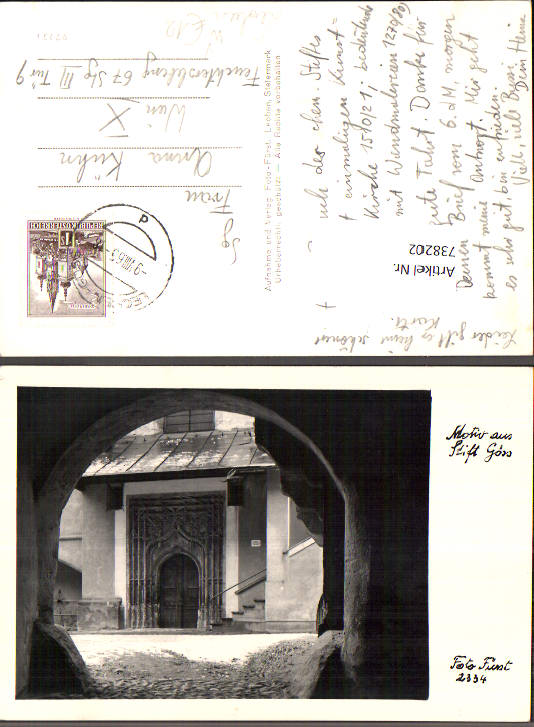 Leider gibt es keine schönere
Karte.
uch der ehem. Stiftes
+ einmaligen Kunst=
Kirche 1510/21, bedeutende
mit Wandmalereien 1270/80,
gute Fahrt. Danke für
Deinen Brief vom 6. d M, morgen
kommt meine Antwort. Mir geht
es sehr gut, bin zufrieden.
Viele, viele Bussi
Dein Heina
Artikel Nr.
738202
Aufnahme und Verlag: Foto-Fürst, Leoben, Steiermark
Urheberrechtl. geschützt — Alle Rechte vorbehalten
Frau
Anna Kühn
Wien X
Feuchterslebeng 67 Stg III Tür 9
REPUBLIK ÖSTERREICH
Motiv aus
Stift Göss
Foto Fürst
2334